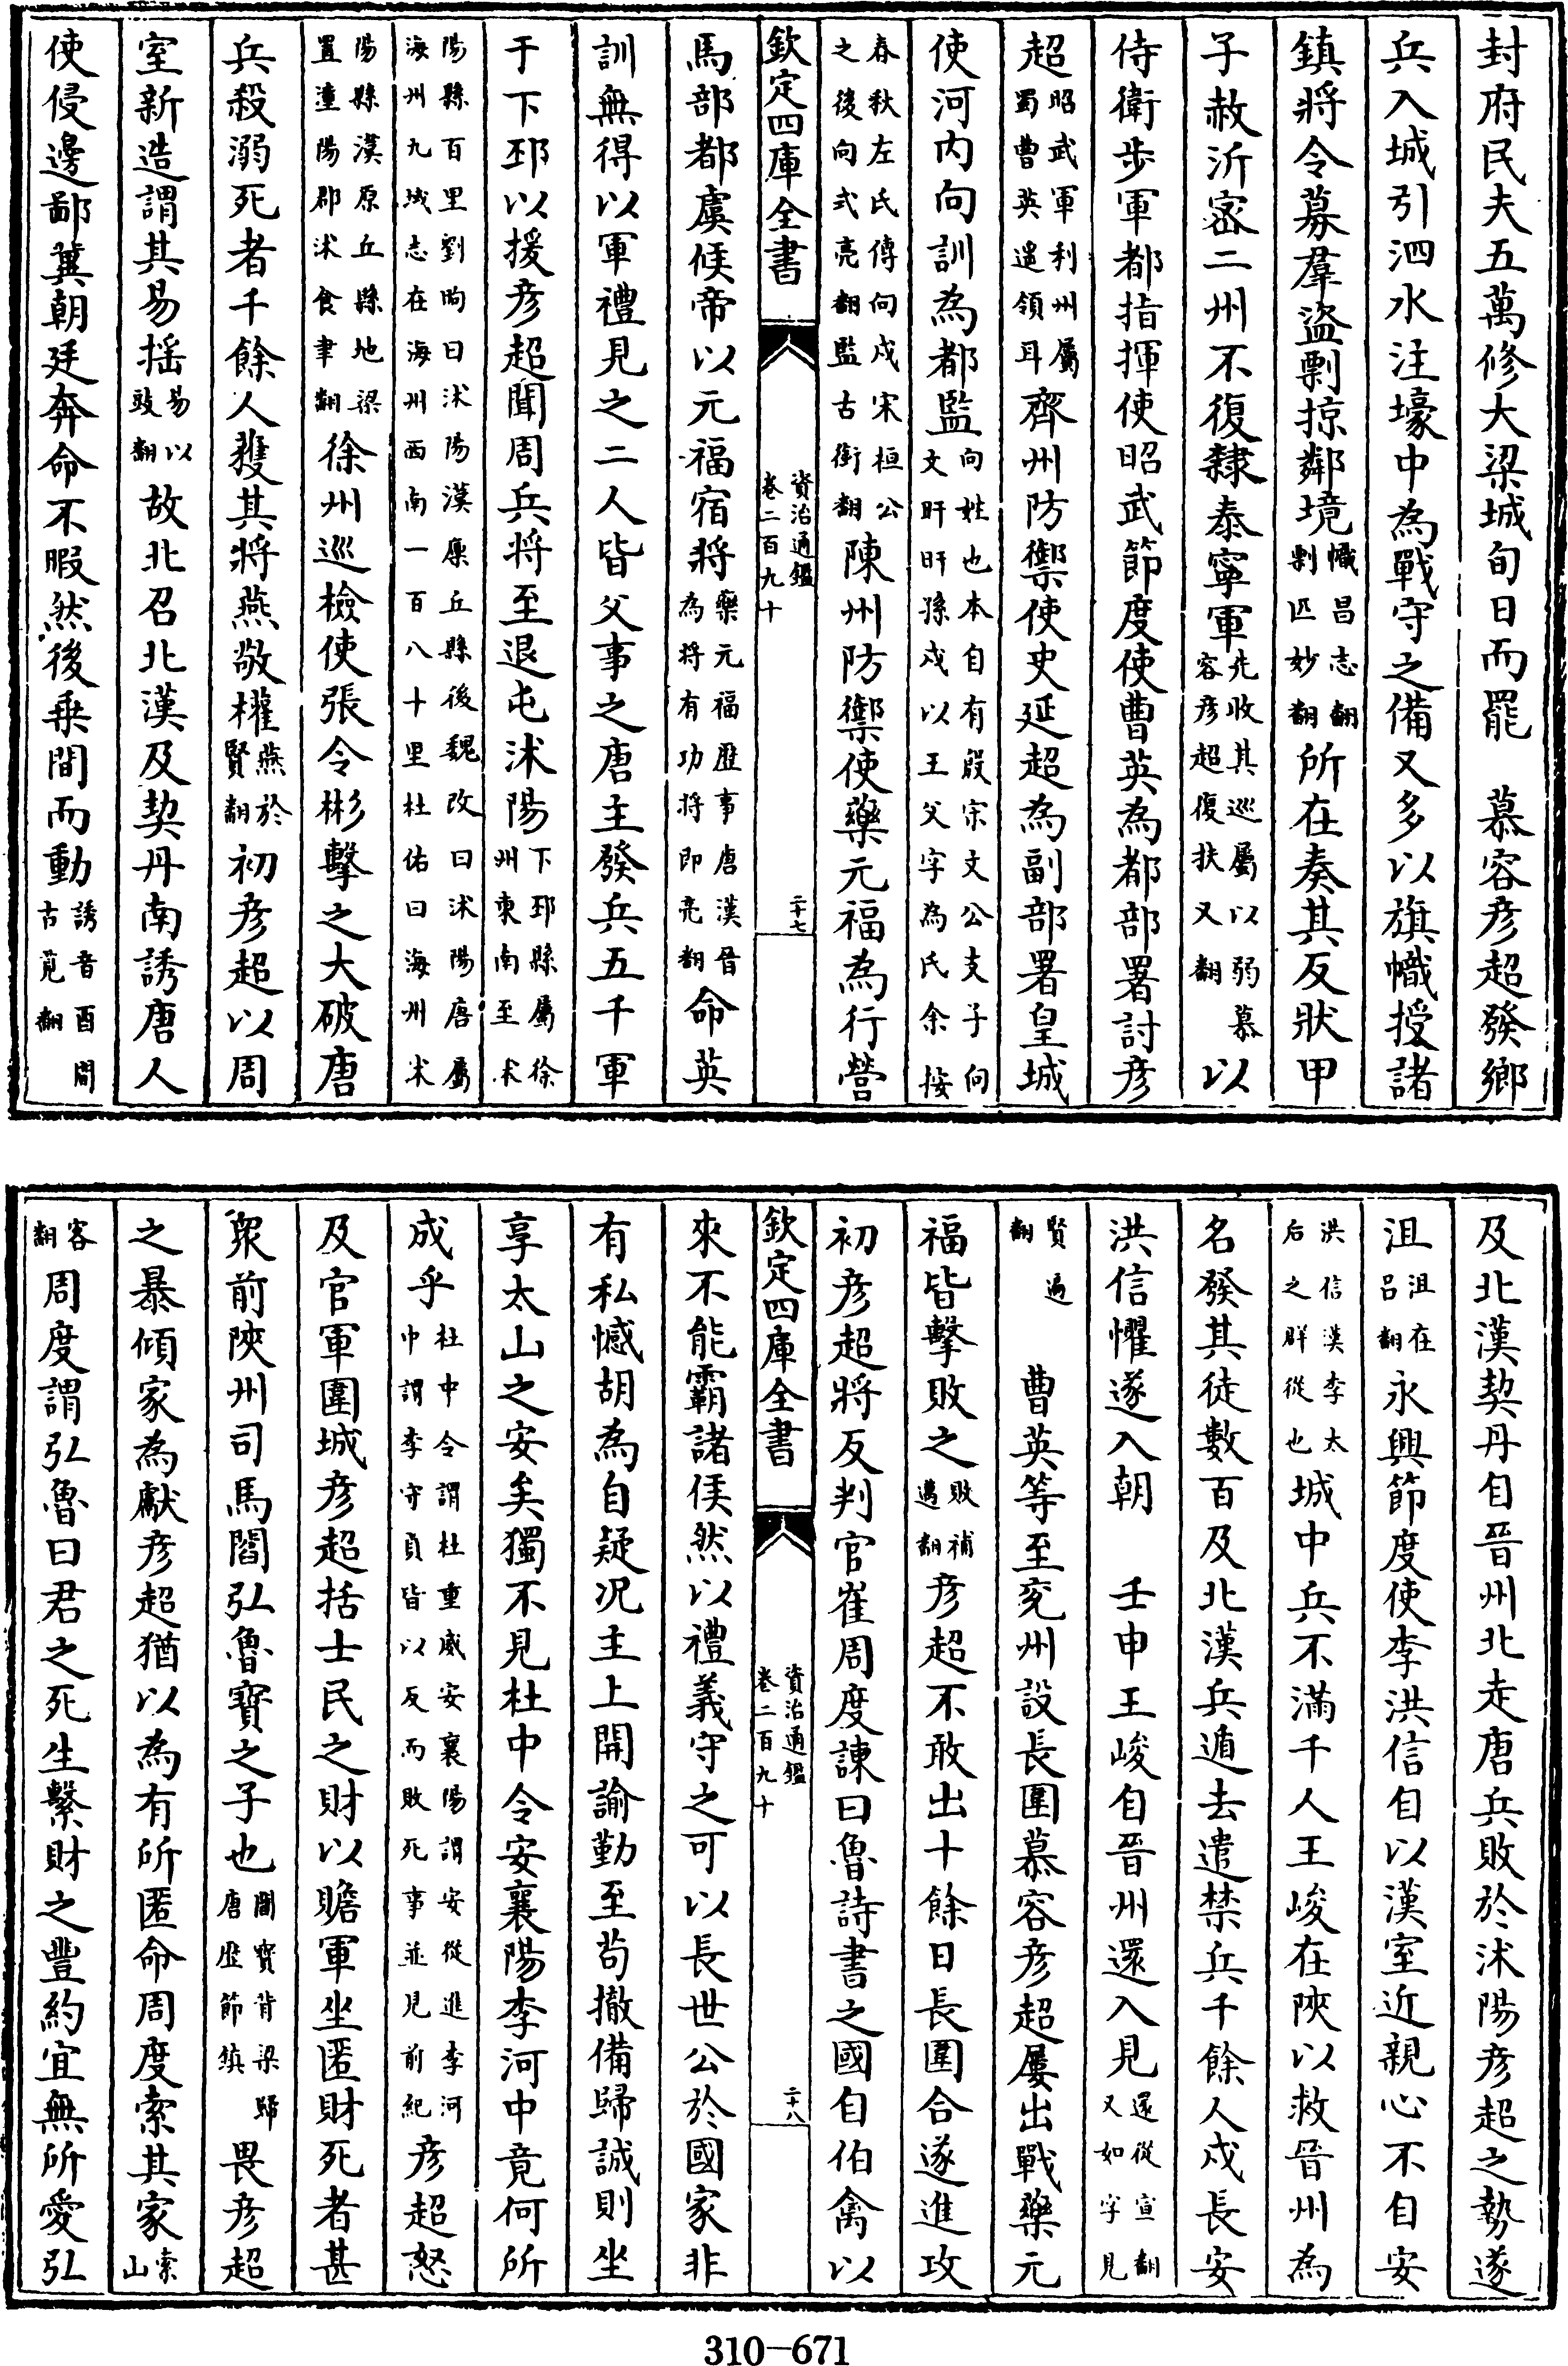 封府民夫五萬修大梁城旬日而罷　慕容彦超發鄉
兵入城引泗水注壕中為戰守之備又多以旗幟授諸
鎮將令募羣盜剽掠鄰境幟昌志翻剽匹妙翻所在奏其反狀甲
子赦沂密二州不復隸泰寧軍先收其巡屬以弱慕容彦超復扶又翻以
侍衛步軍都指揮使昭武節度使曹英為都部署討彦
超昭武軍利州屬蜀曹英遥領耳齊州防禦使史延超為副部署皇城
使河内向訓為都監向姓也本自有殷宋文公支子向文旰旰孫戍以王父字為氏余按
春秋左氏傳向戍宋桓公之後向式亮翻監古銜翻陳州防禦使藥元福為行營
欽定四庫全書　資治通鑑卷二百九十　二十七
馬部都虞候帝以元福宿將藥元福歴事唐漢晉為將有功將即亮翻命英
訓無得以軍禮見之二人皆父事之唐主發兵五千軍
于下邳以援彦超聞周兵將至退屯沭陽下邳縣屬徐州東南至沭
陽縣百里劉昫曰沭陽漢廩丘縣後魏改曰沭陽唐屬海州九域志在海州西南一百八十里杜佑曰海州沭
陽縣漢原丘縣地梁置潼陽郡沭食聿翻徐州巡檢使張令彬擊之大破唐
兵殺溺死者千餘人獲其將燕敬權燕於賢翻初彦超以周
室新造謂其易摇易以豉翻故北召北漢及契丹南誘唐人
使侵邊鄙冀朝廷奔命不暇然後乗間而動誘音酉間古莧翻
及北漢契丹自晉州北走唐兵敗於沭陽彦超之勢遂
沮沮在吕翻永興節度使李洪信自以漢室近親心不自安
洪信漢李太后之群從也城中兵不滿千人王峻在陜以救晉州為
名發其徒數百及北漢兵遁去遣禁兵千餘人戍長安
洪信懼遂入朝　壬申王峻自晉州還入見還從宣翻又如字見
賢遍翻　曹英等至兖州設長圍慕容彦超屢出戰藥元
福皆擊敗之敗補邁翻彦超不敢出十餘日長圍合遂進攻
初彦超將反判官崔周度諫曰魯詩書之國自伯禽以
欽定四庫全書　資治通鑑卷二百九十　二十八
來不能霸諸侯然以禮義守之可以長世公於國家非
有私憾胡為自疑况主上開諭勤至苟撤備歸誠則坐
享太山之安矣獨不見杜中令安襄陽李河中竟何所
成乎杜中令謂杜重威安襄陽謂安從進李河中謂李守貞皆以反而敗死事並見前紀彦超怒
及官軍圍城彦超括士民之財以贍軍坐匿財死者甚
衆前陜州司馬閻弘魯寶之子也閻寶背梁歸唐歴節鎮畏彦超
之暴傾家為獻彦超猶以為有所匿命周度索其家索山
客翻周度謂弘魯曰君之死生繫財之豐約宜無所愛弘
310-671